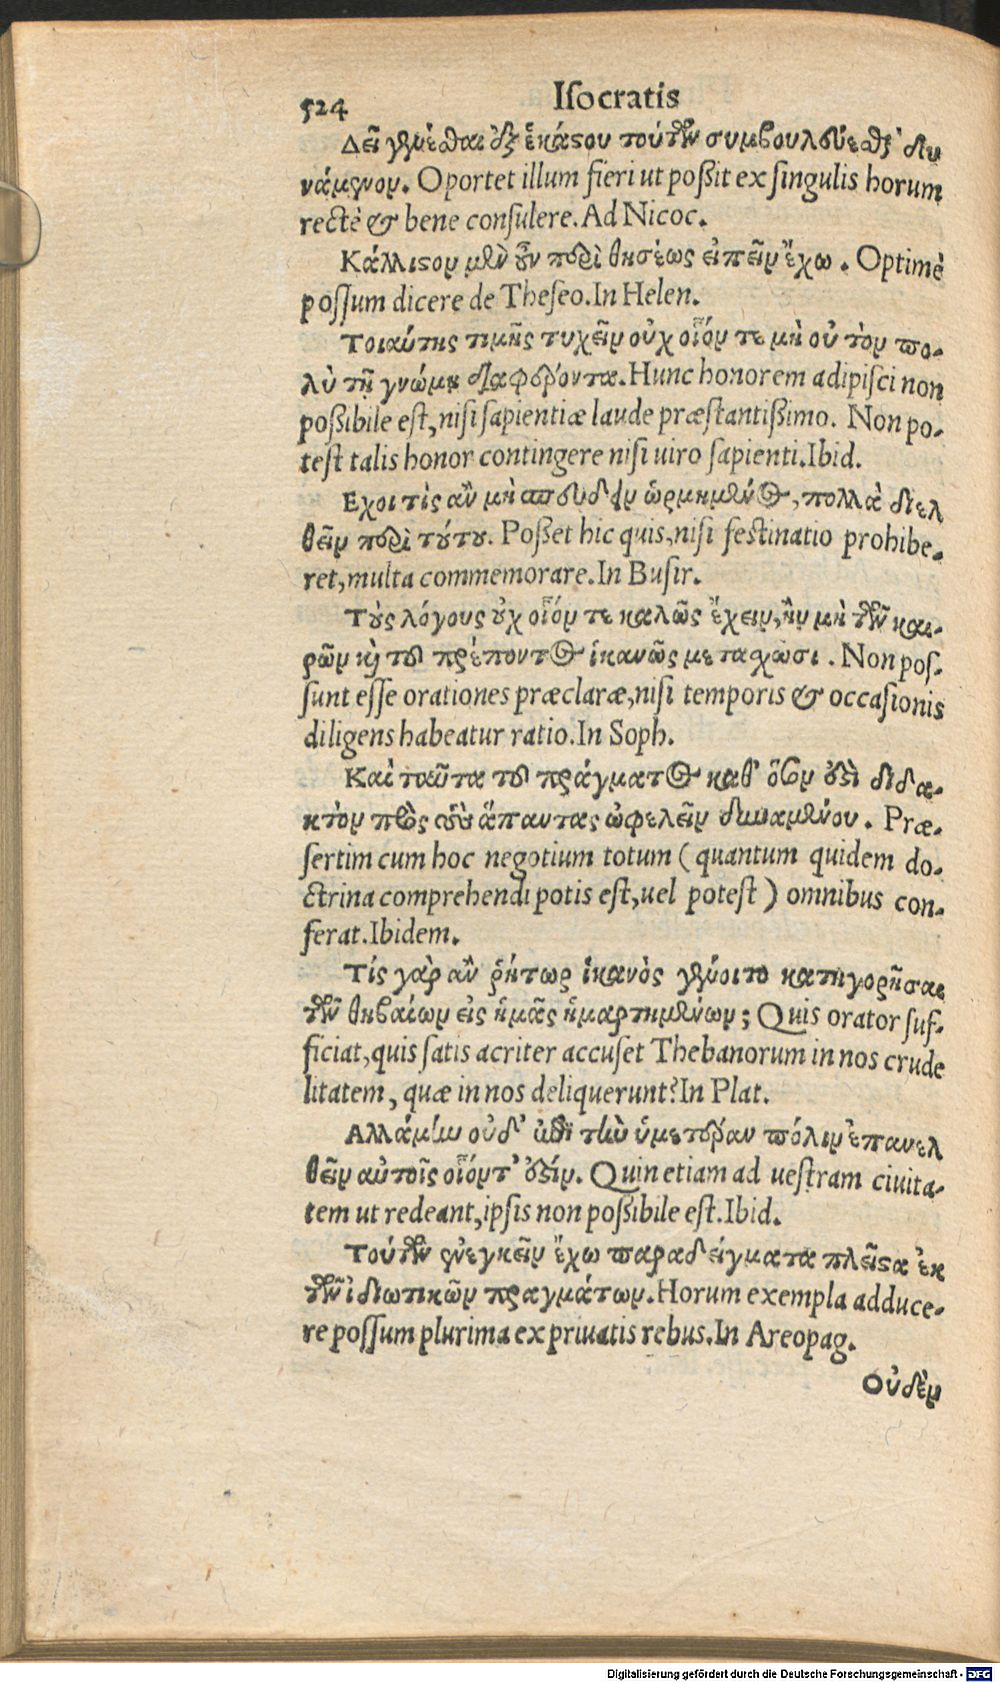 524 Iſocratis
Δεῖ γενέσθαι ἐξ ἑκάστου τούτων συμβουλεύεσθαι δυ
νάμενον. Oportet illum fieri ut poßit ex ſingulis horum
rectè & bene conſulere. Ad Nicoc.
Κάλλιστον μὲν οὖν περὶ θησέως εἰπεῖν ἔχω. Optimè
poſſum dicere de Theſeo. In Helen.
Τοιαύτης τιμῆς τυχεῖν οὐχ οἷόν τε μὴ οὐ τὸν πο-
λὺ τῇ γνώμῃ διαφέροντα. Hunc honorem adipiſci non
poßibile eſt, niſi ſapientiæ laude præſtantißimo. Non po-
teſt talis honor contingere niſi uiro ſapienti. Ibid.
Εχοι τὶς ἂν μὴ σπουδὴν ὡρμημένος, πολλὰ διελ
θεῖν περὶ τούτου. Poßet hic quis, niſi feſtinatio prohibe-
ret, multa commemorare. In Buſir.
Τοὺς λόγους οὐχ οἷόν τε καλῶς ἔχειν, ἢν μὴ τῶν και-
ρῶν καὶ τοῦ πρέποντος ἱκανῶς μεταχῶσι. Non poſ-
ſunt eſſe orationes præclaræ, niſi temporis & occaſionis
diligens habeatur ratio. In Soph.
Καὶ ταῦτα τοῦ πράγματος καθ' ὅσον ἐστὶ διδα-
κτὸν πρὸς τοὺς ἅπαντας ὠφελεῖν δυναμένου. Præ-
ſertim cum hoc negotium totum (quantum quidem do-
ctrina comprehendi potis eſt, uel poteſt) omnibus con-
ferat. Ibidem.
Τίς γὰρ ἂν ῥήτωρ ἱκανὸς γένοιτο κατηγορῆσαι
τῶν θηβαίων εἰς ἡμᾶς ἡμαρτημένων; Quis orator ſuf-
ficiat, quis ſatis acriter accuſet Thebanorum in nos crude
litatem, quæ in nos deliquerunt? In Plat.
Αλλάμὴν οὐδ' ἐπὶ τὴν ὑμετέραν πόλιν ἐπανελ
θεῖν αὐτοῖς οἷόντ' ἐστίν. Quin etiam ad ueſtram ciuita-
tem ut redeant, ipſis non poßibile eſt. Ibid.
Τούτων ἐνεγκεῖν ἔχω παραδείγματα πλεῖστα ἐκ
τῶν ἰδιωτικῶν πραγμάτων. Horum exempla adduce-
re poſſum plurima ex priuatis rebus. In Areopag.
Οὐδὲν
Digitalisierung gefördert durch die Deutsche Forschungsgemeinschaft - DFG